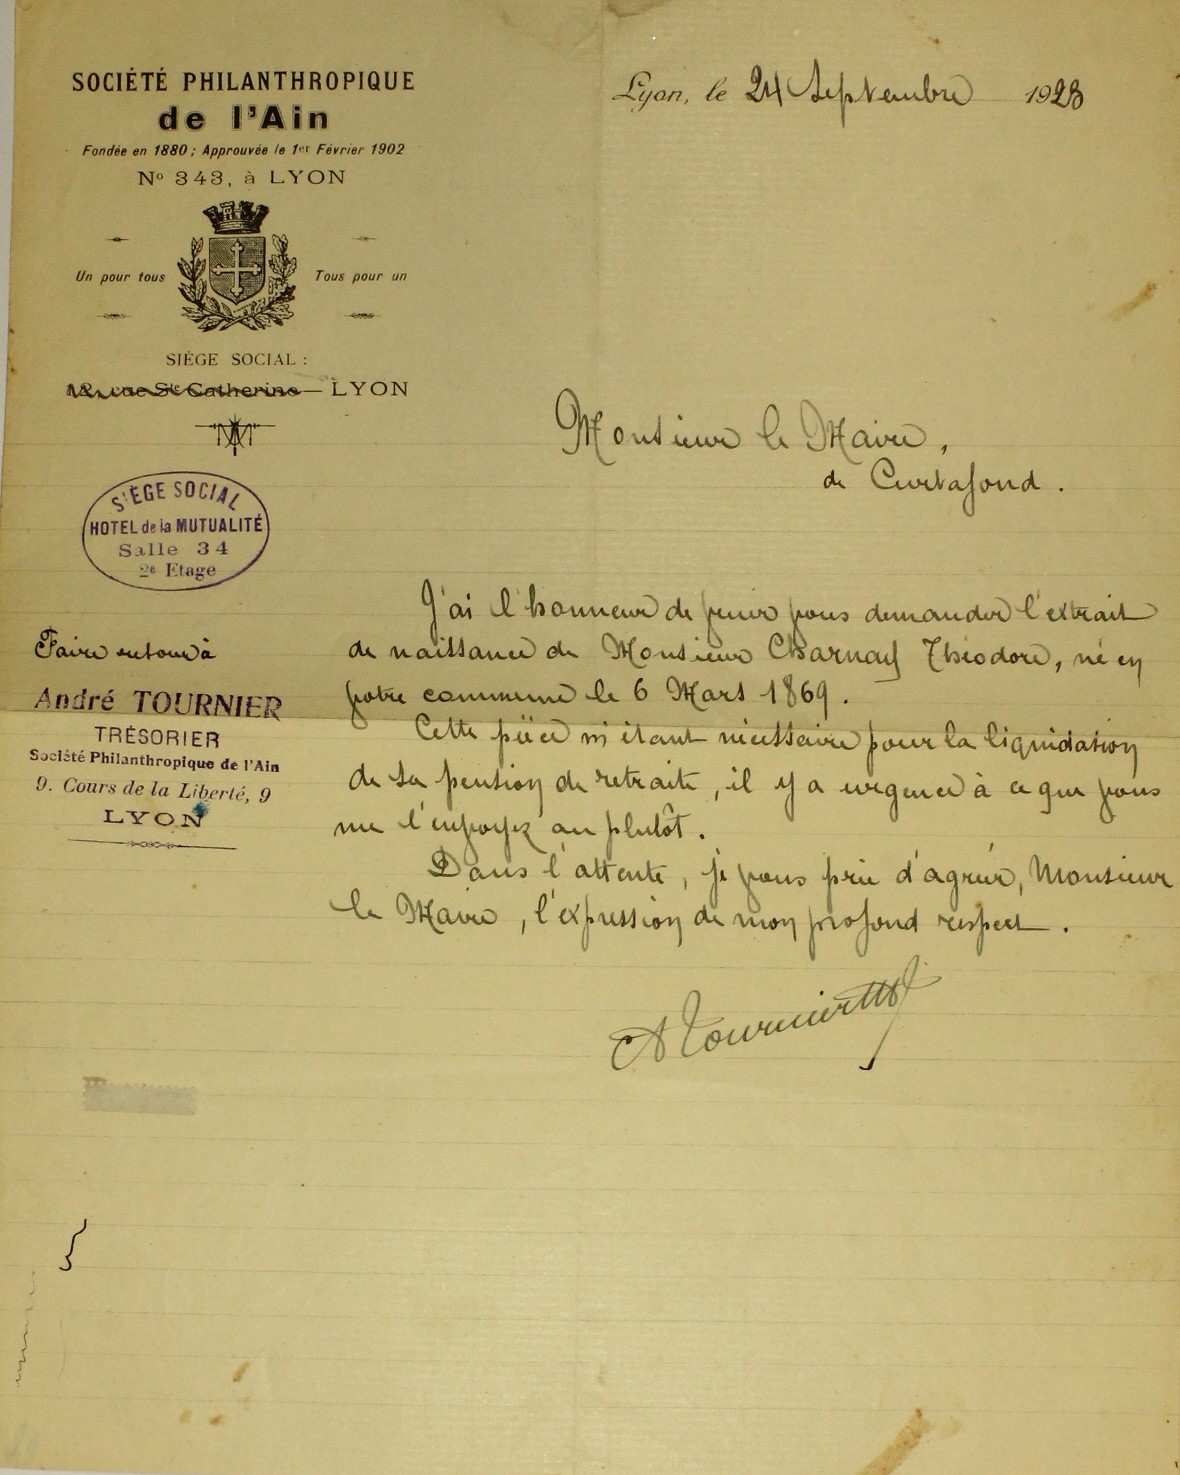 SOCIÉTÉ PHILANTHROPIQUE
de l'Ain
Fondée en 1880 ; Approuvée le 1er Février 1902
No 343, à LYON
Un pour tous
Tous pour un
SIÈGE SOCIAL :
12, rue Ste Catherine — LYON
SIÈGE SOCIAL
HOTEL de la MUTUALITÉ
Salle 34
2e Etage
Faire retour à
André TOURNIER
TRÉSORIER
Société Philanthropique de l'Ain
9. Cours de la Liberté, 9
LYON
Lyon, le 24 Septembre 1928
Monsieur le Maire,
de Curtafond.
J'ai l'honneur de venir vous demander l'extrait
de naissance de Monsieur Charnay Théodore, né en
votre commune le 6 Mars 1869.
Cette pièce m'étant nécessaire pour la liquidation
de sa pension de retraite, il y a urgence à ce que vous
me l'envoyez au plutôt.
Dans l'attente, je vous prie d'agréer, Monsieur
le Maire, l'expression de mon profond respect.
A Tournier